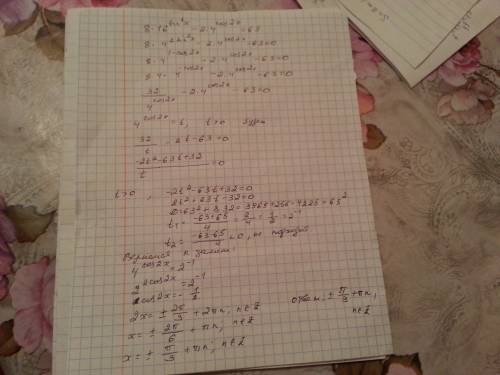 8·16^{sin²x} - 2·4^{cos2x} = 63
8·4^{2sin²x} - 2·4^{cos2x} - 63=0
8·4^{1-cos2x} - 2·4^{cos2x} - 63=0
8·4·4^{-cos2x} - 2·4^{cos2x} - 63=0
32/4^{cos2x} - 2·4^{cos2x} - 63=0
4^{cos2x} = t, t>0
32/t - 2t - 63=0
(-2t²-63t+32)/t = 0
t>0, -2t²-63t+32=0
2t²+63t-32=0
D=63²+8·32=3969+256=4225=65²
t₁ = (-63+65)/4 = 2/4 = 1/2 = 2⁻¹
t₂ = (-63-65)/4 < 0, не подходит
Вернёмся к замене:
4^{cos2x} = 2⁻¹
2^{2cos2x} = 2⁻¹
cos2x = -1/2
2x = ± 2π/3 + 2πn, n∈Z
x = ± 2π/6 + πn, n∈Z
x = ± π/3 + πn, n∈Z
Ответ: ± π/3 + πn,
n∈Z